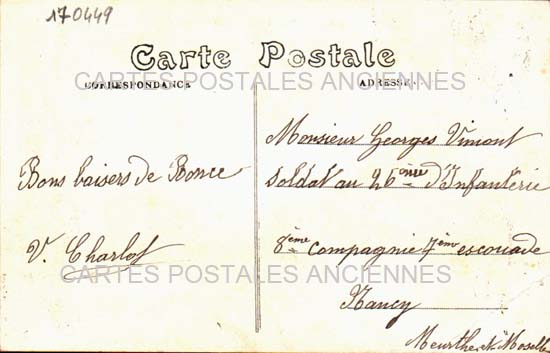 170449
Carte Postale
CARTES POSTALES ANCIENNES
CORRESPONDANCE
ADRESSE
Bons baisers de Bonce
V. Charlot
Monsieur Georges Vimont
Soldat au 26ème d'Infanterie
8ème compagnie 7ème escouade
CARTES POSTALES ANCIENNES
Nancy
Meurthe et Moselle